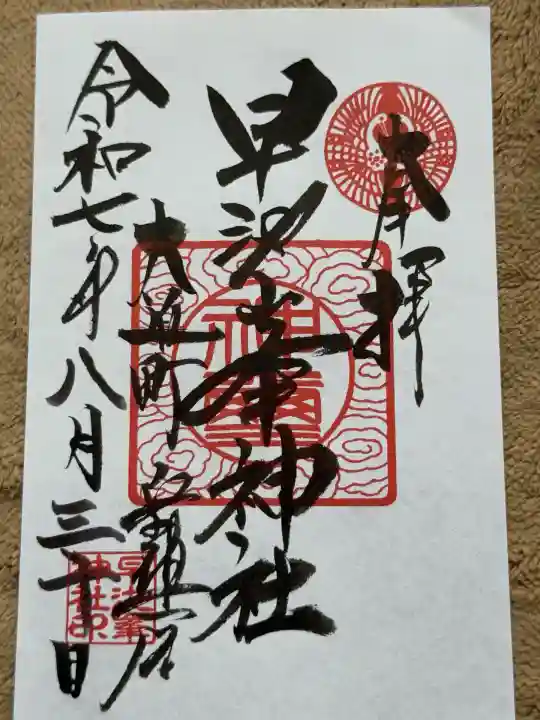 奉拝
早池峯神社
大迫町
令和七年八月三十日
早池峯
神社印